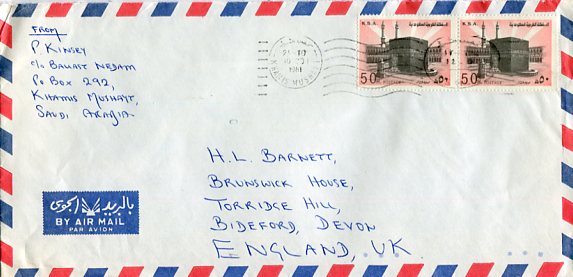 FROM
P KINSEY
c/o BALLAST NEDAM
PO BOX 292,
KHAMIS MUSHAYT,
SAUDI ARABIA.
1981
KHAMIS MUSHAIT
K.S.A.
المملكة العربية السعودية
50
POSTAGE
٥٠
K.S.A.
المملكة العربية السعودية
50
POSTAGE
٥٠
H.L. BARNETT,
BRUNSWICK HOUSE,
TORRIDGE HILL,
BIDEFORD, DEVON
ENGLAND, UK.
بالبريد الجوي
BY AIR MAIL
PAR AVION